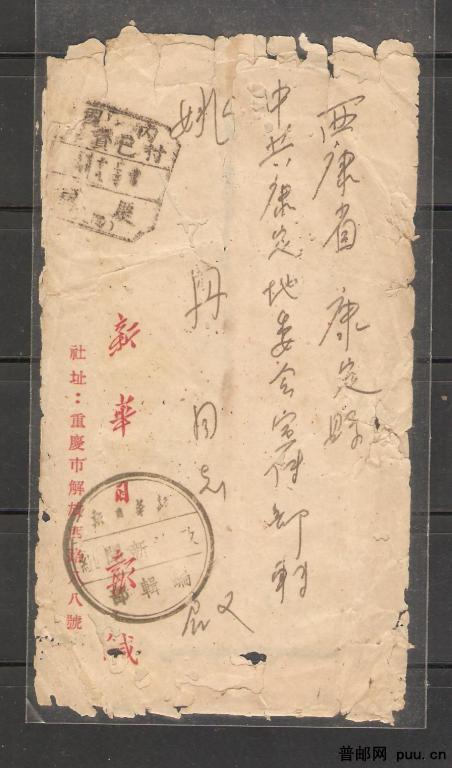 西康省康定縣
中共康定地委会宣传部轉
姚丹同志 收
國內
郵資已付
重慶
新華日報緘
社址：重慶市解放西路六八號
新華日報
編輯部
普邮网 puu.cn